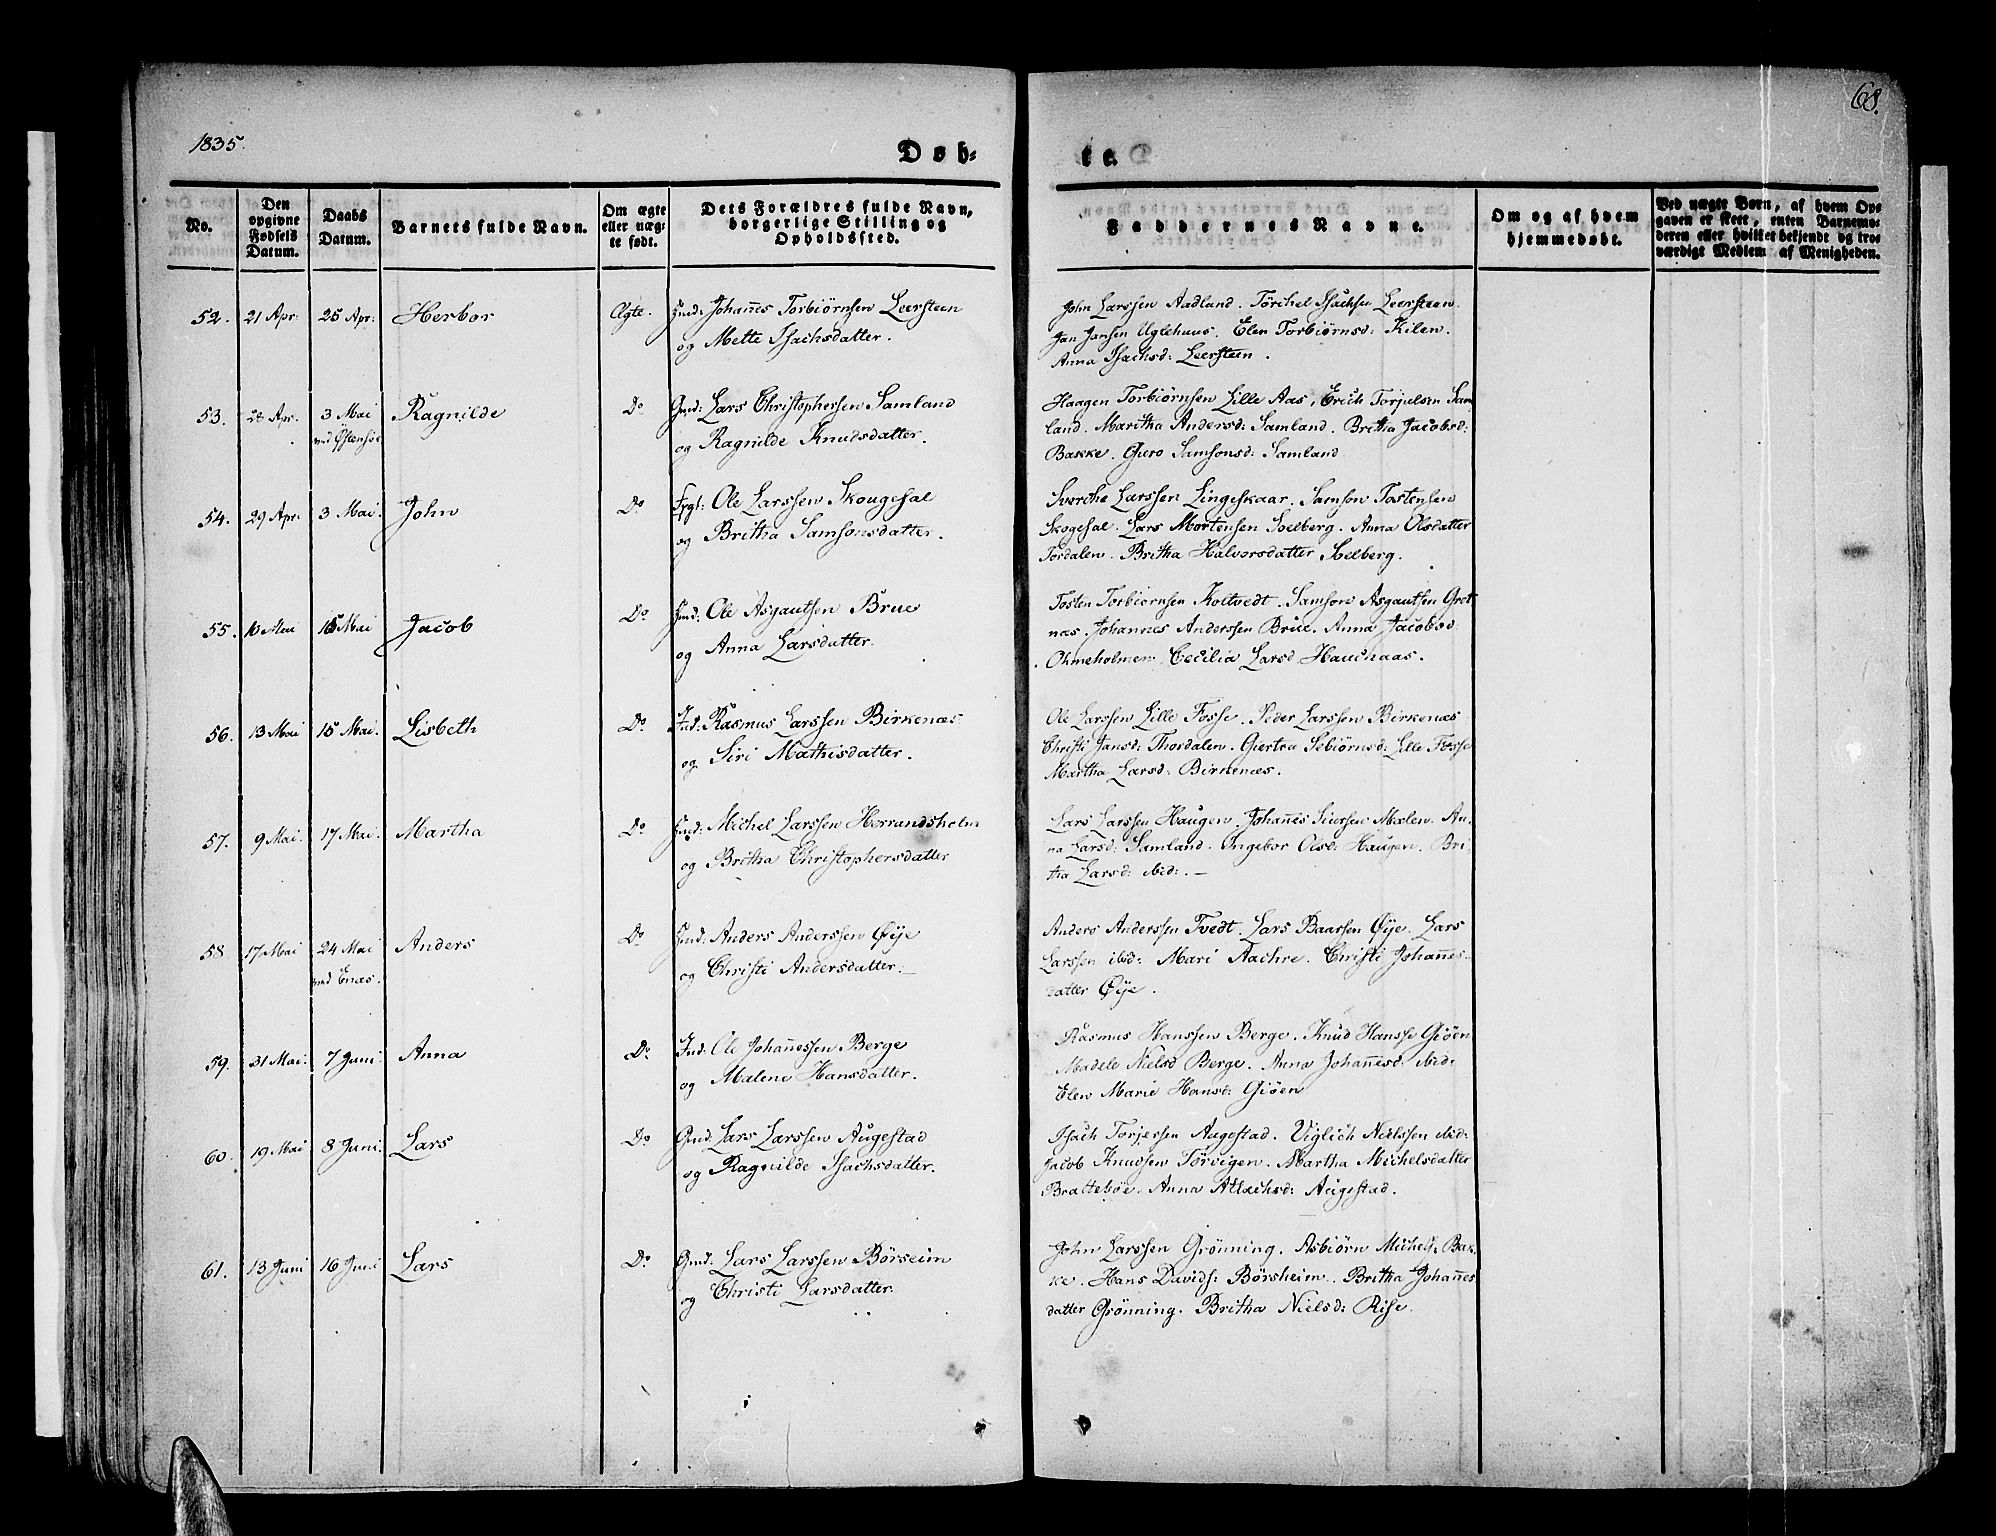 68.
1835.
Døb-
te.
No.
Den opgivne Fødsels Datum.
Daabs Datum.
Barnets fulde Navn.
Om ægte eller uægte født.
Dets Forældres fulde Navn, borgerlige Stilling og Opholdssted.
Faddernes Navne.
Om og af hvem hjemmedøbt.
Ved uægte Børn, af hvem Opgaven er skeet, enten Barnemoderen eller hvilket bekjendt og troværdigt Medlem af Menigheden.
52. 21 Apr: 25 Apr: Herbor Ægte. Huusd: Johanes Torbiørnsen Leersteen
og Mette Isachsdatter.
John Larssen Aadland. Törchel Isachsen Leersteen.
Jan Jansen Uglehuus. Elen Torbiørnsd: Kilen.
Anna Isachsd: Leersteen.
53. 28 Apr. 3 Mai Ragnilde Do Gmd: Lars Christophersen Samland
ved Östensöe
og Ragnilde Knudsdatter.
Haagen Torbiörnsen Lille Aas, Erich Torjulsen Sam
land. Maritha Andersd: Samland. Britha Jacobsd:
Bakke. Guro Samsonsd: Samland
54. 29 Apr: 3 Mai. John Do Ole Larssen Skougesal
og Britha Samsonsdatter.
Larssen Lingeskaar. Samson Tostensen
Skogesal. Lars Mortensen Solberg. Anna Olsdatter
Tordalen. Britha Halvorsdatter Solberg.
55. 10 Mai 15 Mai Jacob Do Ole Asgautsen Brue
og Anna Larsdatter.
Tosten Torbiørnsen Koltvedt. Samson Asgautsen Grot
næs. Johannes Anderssen Brue. Anna Jacobsd:
Ohmeholmen. Cecilia Larsd Hauchaas.
56. 13 Mai 15 Mai. Lisbeth Do Ind: Rasmus Larssen Birkenæs
og Siri Mathisdatter.
Ole Larssen Lille Fosse. Peder Larssen Birkenæs
Christi Jansd: Thordalen. Giertru Sebiörnsd: Lille Fosse
Martha Larsd: Birkenæs.
57. 9 Mai. 17 Mai. Martha Do Michel Larssen Herrandsholm
og Britha Christophersdatter
Lars Larssen Haugen. Johanes Siursen Mælen. An-
na Larsd: Samland. Ongebor Olsd: Haugen. Bri-
tha Larsd: ibid:. –
58 17 Mai 24 Mai Anders Do Anders Anderssen Öye
ved Enæs.
og Christi Andersdatter. –
Anders Anderssen Tvedt. Lars Baarsen Öye. Lars
Larssen ibid: Mari Aachre. Christi Johanes-
datter Öye.
59. 31 Mai. 7 Juni. Anna Do. Ind: Ole Johanessen Berge
og Malene Hansdatter.
Rasmus Hanssen Berge. Knud Hansse Giöen
Madele Nielsd Berge. Anna Johanesd: ibid:
Elen Marie Hansd: Giöen
60. 19 Mai 8 Juni. Lars Do Gmd: Lars Larssen Augestad
og Ragnilde Isachsdatter.
Isach Torjersen Augestad. Viglich Nielssen ibid:
Jacob Knudsen Törvigen. Martha Michelsdatter
Bratteböe. Anna Aslachsd: Augestad.
61. 13 Juni 16 Juni Lars Do Gmd: Lars Larssen Börseim
og Christi Larsdatter.
John Larssen Grönning. Asbiörn Michels: Bak-
ke. Hans Davids: Börsheim. Britha Johanes
datter Grönning. Britha Nielsd: Rise.